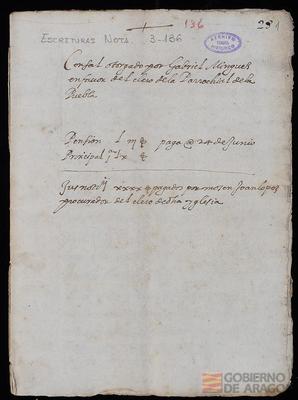 136
231
ESCRITURAS NOTA. 3-186
ARCHIVO
HISTORICO
Censal otorgado por Gabriel Minguel
en favor del clero de la Parrochiel de la
Puebla
Pension l paga @ 24 de Junio
Principal
pagados por mosen Joan lopez
procurador del clero de dha yglesia
GOBIERNO
DE ARAGO